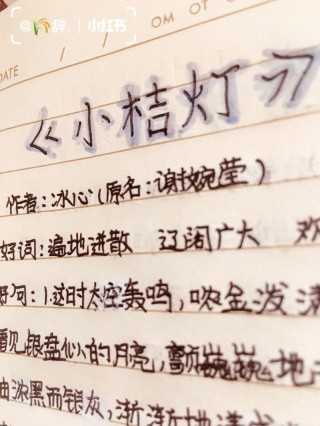 @辞.
小红书
DATE / /
OM OT O
《小桔灯》
作者:冰心(原名:谢婉莹)
好词:遍地迸散 辽阔广大 欢
好句:1.这时太空轰鸣,浓金泼满
看见银盘似的月亮,颤巍巍地
由浓黑而银灰,渐渐地